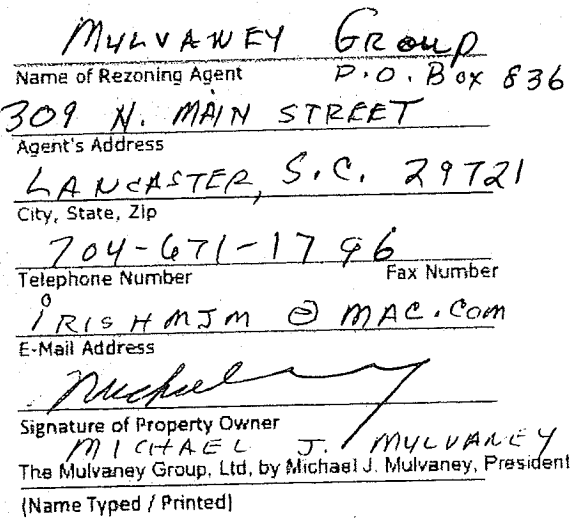 MULVANEY GROUP
Name of Rezoning Agent P.O. Box 836
309 N. MAIN STREET
Agent's Address
LANCASTER, S.C. 29721
City, State, Zip
704-671-1796
Telephone Number Fax Number
IRISHMJM @ MAC.COM
E-Mail Address
Michael
Signature of Property Owner
MICHAEL J. MULVANEY
The Mulvaney Group, Ltd, by Michael J. Mulvaney, President
(Name Typed / Printed)